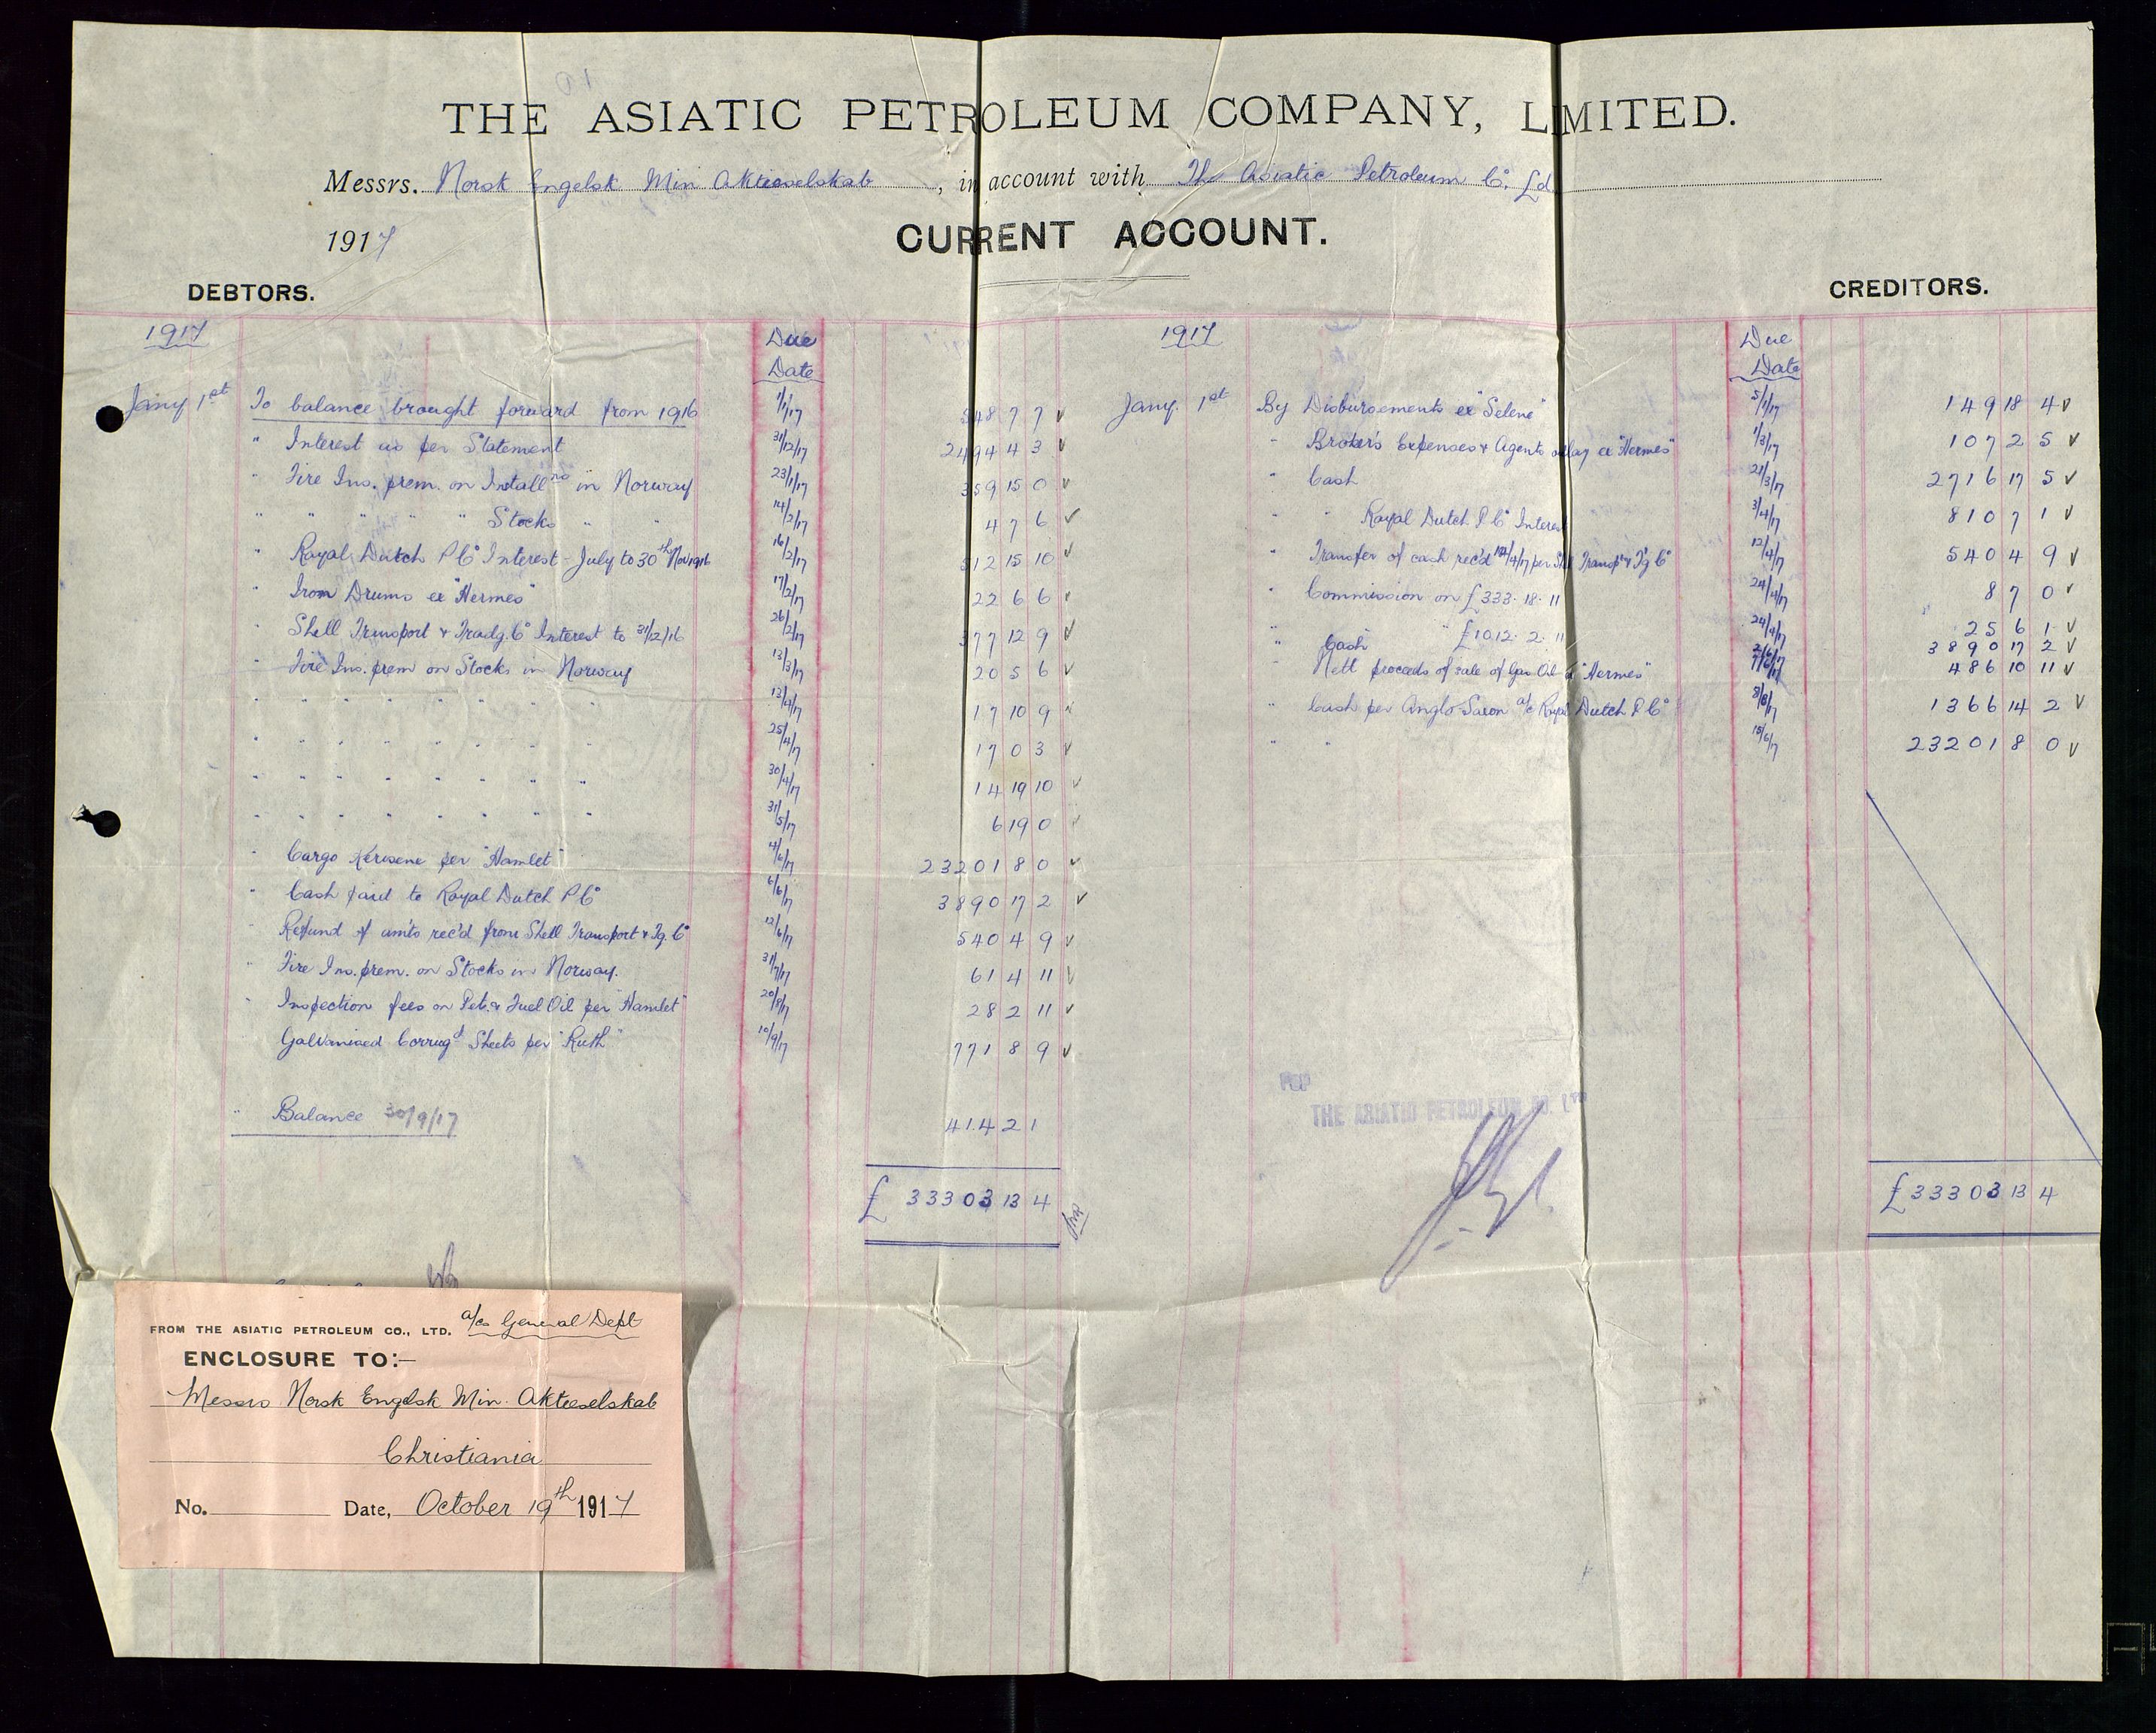 THE ASIATIC PETROLEUM COMPANY, LIMITED.
Messrs. Norsk Engelsk Min Aktieselskab, in account with The Asiatic Petroleum Co. Ld
1917
CURRENT ACCOUNT.
DEBTORS.
1917 Due Date
Jany 1st To balance brought forward from 1916 1/1/17 548 7 7
" Interest as per Statement 31/12/17 2494 4 3
" Fire Ins. prem. on Installns in Norway 23/1/17 359 15 0
" " " " " Stocks " " 14/2/17 4 7 6
" Royal Dutch P Co Interest - July to 30th Nov 1916 16/2/17 512 15 10
" Iron Drums ex "Hermes" 17/2/17 22 6 6
" Shell Transport & Tradg. Co Interest to 31/12/16 26/2/17 377 12 9
" Fire Ins. prem on Stocks in Norway 13/3/17 20 5 6
" " " " " " " 13/4/17 17 10 9
" " " " " " " 25/4/17 17 0 3
" " " " " " " 30/4/17 14 19 10
" " " " " " " 31/5/17 6 19 0
" Cargo Kerosene per "Hamlet" 4/6/17 23201 8 0
" Cash paid to Royal Dutch P Co 6/6/17 3890 17 2
" Refund of amts rec'd from Shell Transport & Tg. Co 12/6/17 540 4 9
" Fire Ins. prem. on Stocks in Norway. 31/7/17 61 4 11
" Inspection fees on Pet. & Fuel Oil per "Hamlet" 20/8/17 28 2 11
" Galvanised Corrugd Sheets per "Ruth" 10/9/17 771 8 9
" Balance 30/9/17 414 2 1
£ 33303 13 4
CREDITORS.
1917 Due Date
Jany. 1st By Disbursements ex "Selene" 5/1/17 149 18 4
" Broker's Expenses & Agents outlay ex "Hermes" 1/3/17 107 2 5
" Cash 21/3/17 2716 17 5
" " Royal Dutch P Co Interest 3/4/17 810 7 1
" Transfer of cash rec'd 12/4/17 per Shell Transpt & Tg Co 12/4/17 540 4 9
" Commission on £333. 18. 11 24/4/17 8 7 0
" " " £1012. 2. 11 24/4/17 25 6 1
" Cash 3890 17 2
" Nett proceeds of sale of Gas Oil ex "Hermes" 486 10 11
" Cash per Anglo Saxon a/c Royal Dutch P Co 8/8/17 1366 14 2
" " 15/6/17 23201 8 0
£33303 13 4
POP
THE ASIATIC PETROLEUM CO. LTD
FROM THE ASIATIC PETROLEUM CO., LTD. a/cs General Dept
ENCLOSURE TO:—
Messrs Norsk Engelsk Min. Aktieselskab
Christiania
No. Date, October 19th 1917